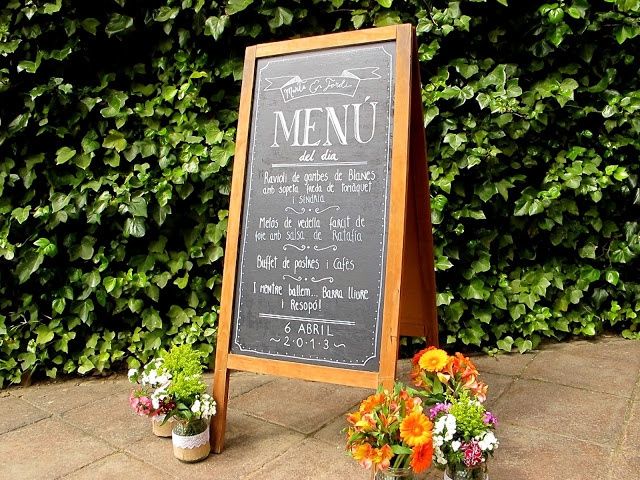 Marta & Jordi
MENÚ
del dia
Ravioli de gambes de Blanes
amb sopeta freda de tomàquet
i síndria
Melós de vedella farcit de
foie amb salsa de Ratafia
Buffet de postres i Cafès
I mentre ballem... Barra lliure
i Resopó!
6 ABRIL
~2013~